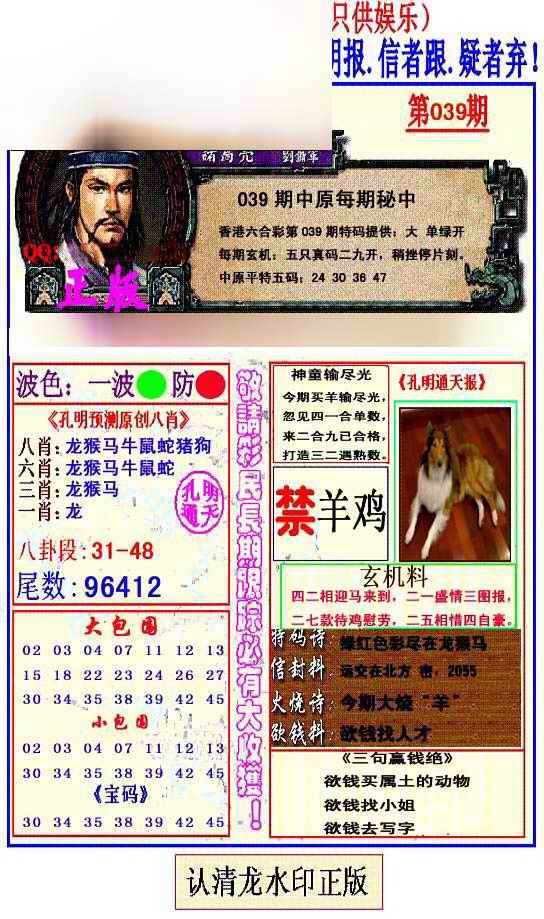 只供娱乐）
明报.信者跟.疑者弃！
第039期
诸葛亮 刘备军
039 期中原每期秘中
香港六合彩第 039 期特码提供：大 单绿开
每期玄机：五只真码二九开，稍挫停片刻。
中原平特五码：24 30 36 47
QQ:
正版
波色：一波 防
《孔明预测原创八肖》
八肖:龙猴马牛鼠蛇猪狗
六肖:龙猴马牛鼠蛇
三肖:龙猴马
一肖:龙
孔明
通天
八卦段:31-48
尾数:96412
大包围
02 03 04 07 11 12 13
15 18 22 23 24 26 27
30 34 35 38 39 42 45
小包围
02 03 04 07 11 12 13
30 34 35 38 39 42 45
《宝码》
30 34 35 38 39 42 45
敬請彩民長期跟踪必有大收獲！
神童输尽光
今期买羊输尽光，
忽见四一合单数，
来二合九已合格，
打造三二遇熟数。
《孔明通天报》
禁羊鸡
玄机料
四二相迎马来到，二一盛情三图报，
二七款待鸡慰劳，二五相惜四自豪。
特码诗：绿红色彩尽在龙猴马
信封料：远交在北方 密，2055
火烧诗：今期大烧“羊”
欲钱料：欲钱找人才
《三句赢钱绝》
欲钱买属土的动物
欲钱找小姐
欲钱去写字
认清龙水印正版